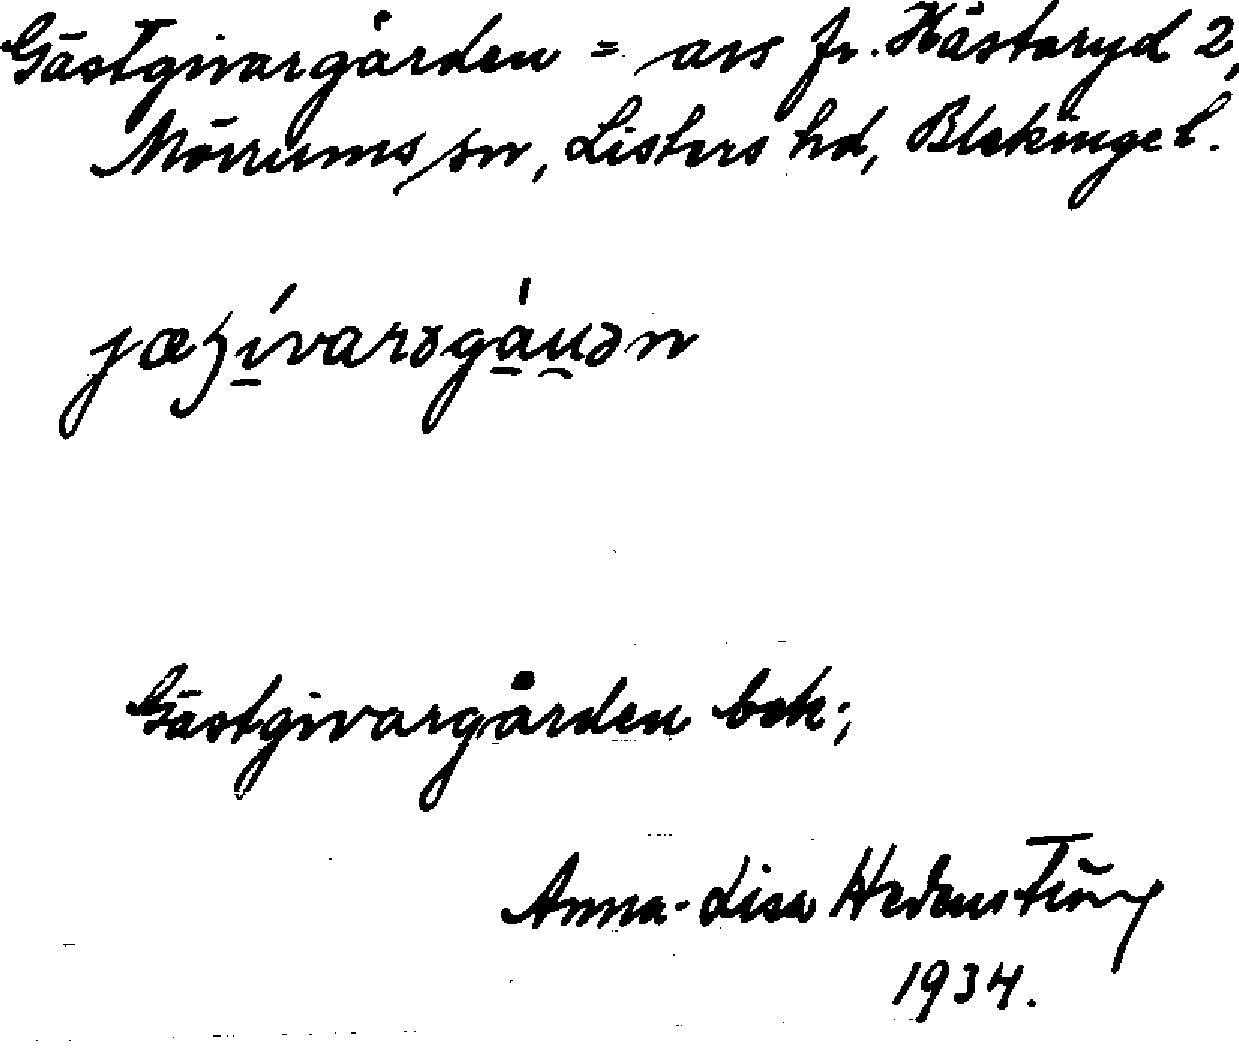 Gästgivargården = avs fr. Hästaryd 2,
Mörrums sn, Listers hd, Blekinge l.
Gästgivargården bek.;
Anna-Lisa Hedenstierna
1934.